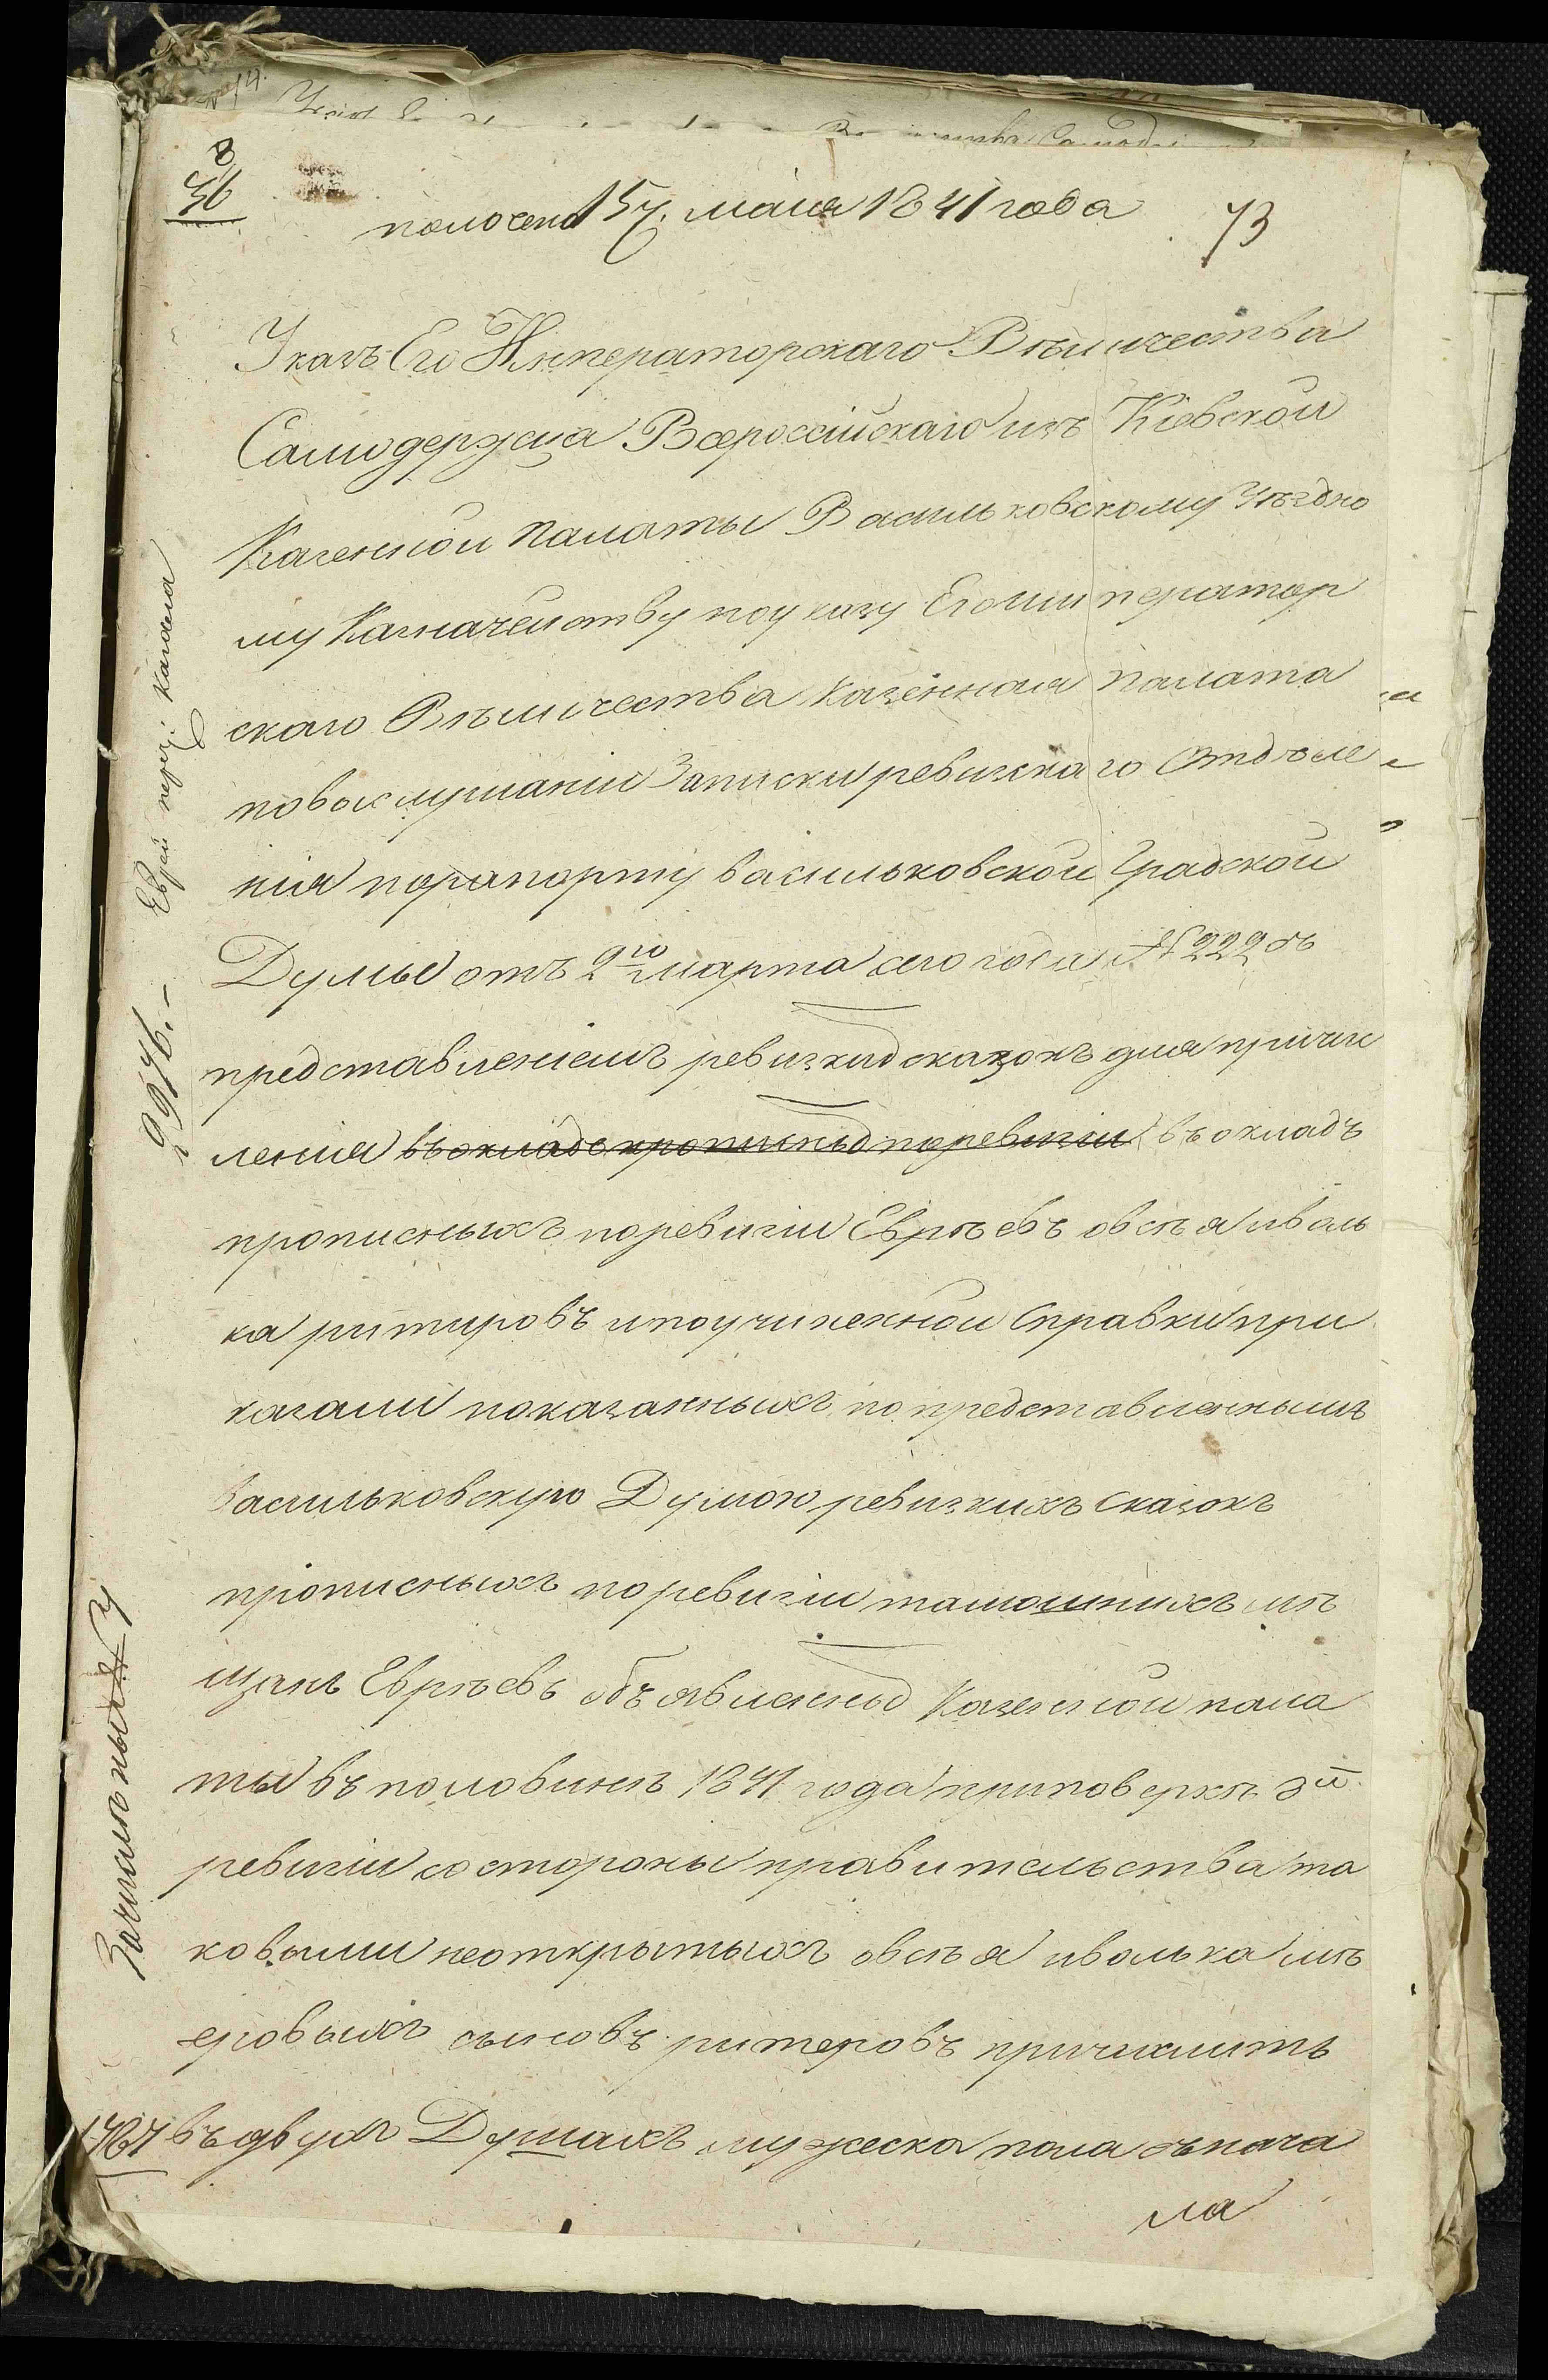 8
36
полочено 15ч. маия 1841 года
73
Указъ Его Императорскаго Вѣличества
Самодержца Всероссійскаго изъ Кіевской
Казенной палаты Васильковскому Уѣздно
му Казначейству поуказу Его император
скаго Вѣличества казенная палата
повыслушаніи Записки ревизкаго Отдѣле
нія порапорту васильковской Градской
Думы отъ 2го марта сего года № 222 съ
представленіемъ ревизкихъ сказокъ для причис
ления въокладъ прописныхъ поревизіи въокладъ
прописныхъ поревизіи Евреѣвъ овсѣя иволь
ка ритировъ ипоучиненной Справки при
казали показанныхъ по представленнымъ
васильковскую Думою ревизкихъ сказокъ
прописныхъ поревизіи тамошнихъ мѣ
щанъ Евреѣвъ объявленныхъ Казенной пала
ты въ половинѣ 1841 года приповеркѣ 8й
ревизіи состороны правительства та
ковыми неоткрытыхъ овсѣя иволька мѣ
еровыхъ сыновъ ритеровъ причислить
въ двухъ Душахъ мужеска пола съ нача
ла
2976.-